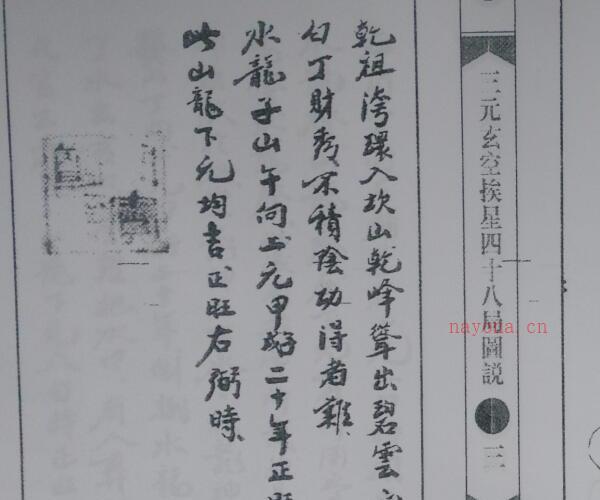 三元玄空挨星四十八局圖説
三
乾祖灣環入坎山乾峰聳出碧雲
勻丁財秀不積陰功得者難
水龍子山午向上元甲
二十年正
此山龍下元均吉正旺右弼時
nayona.cn